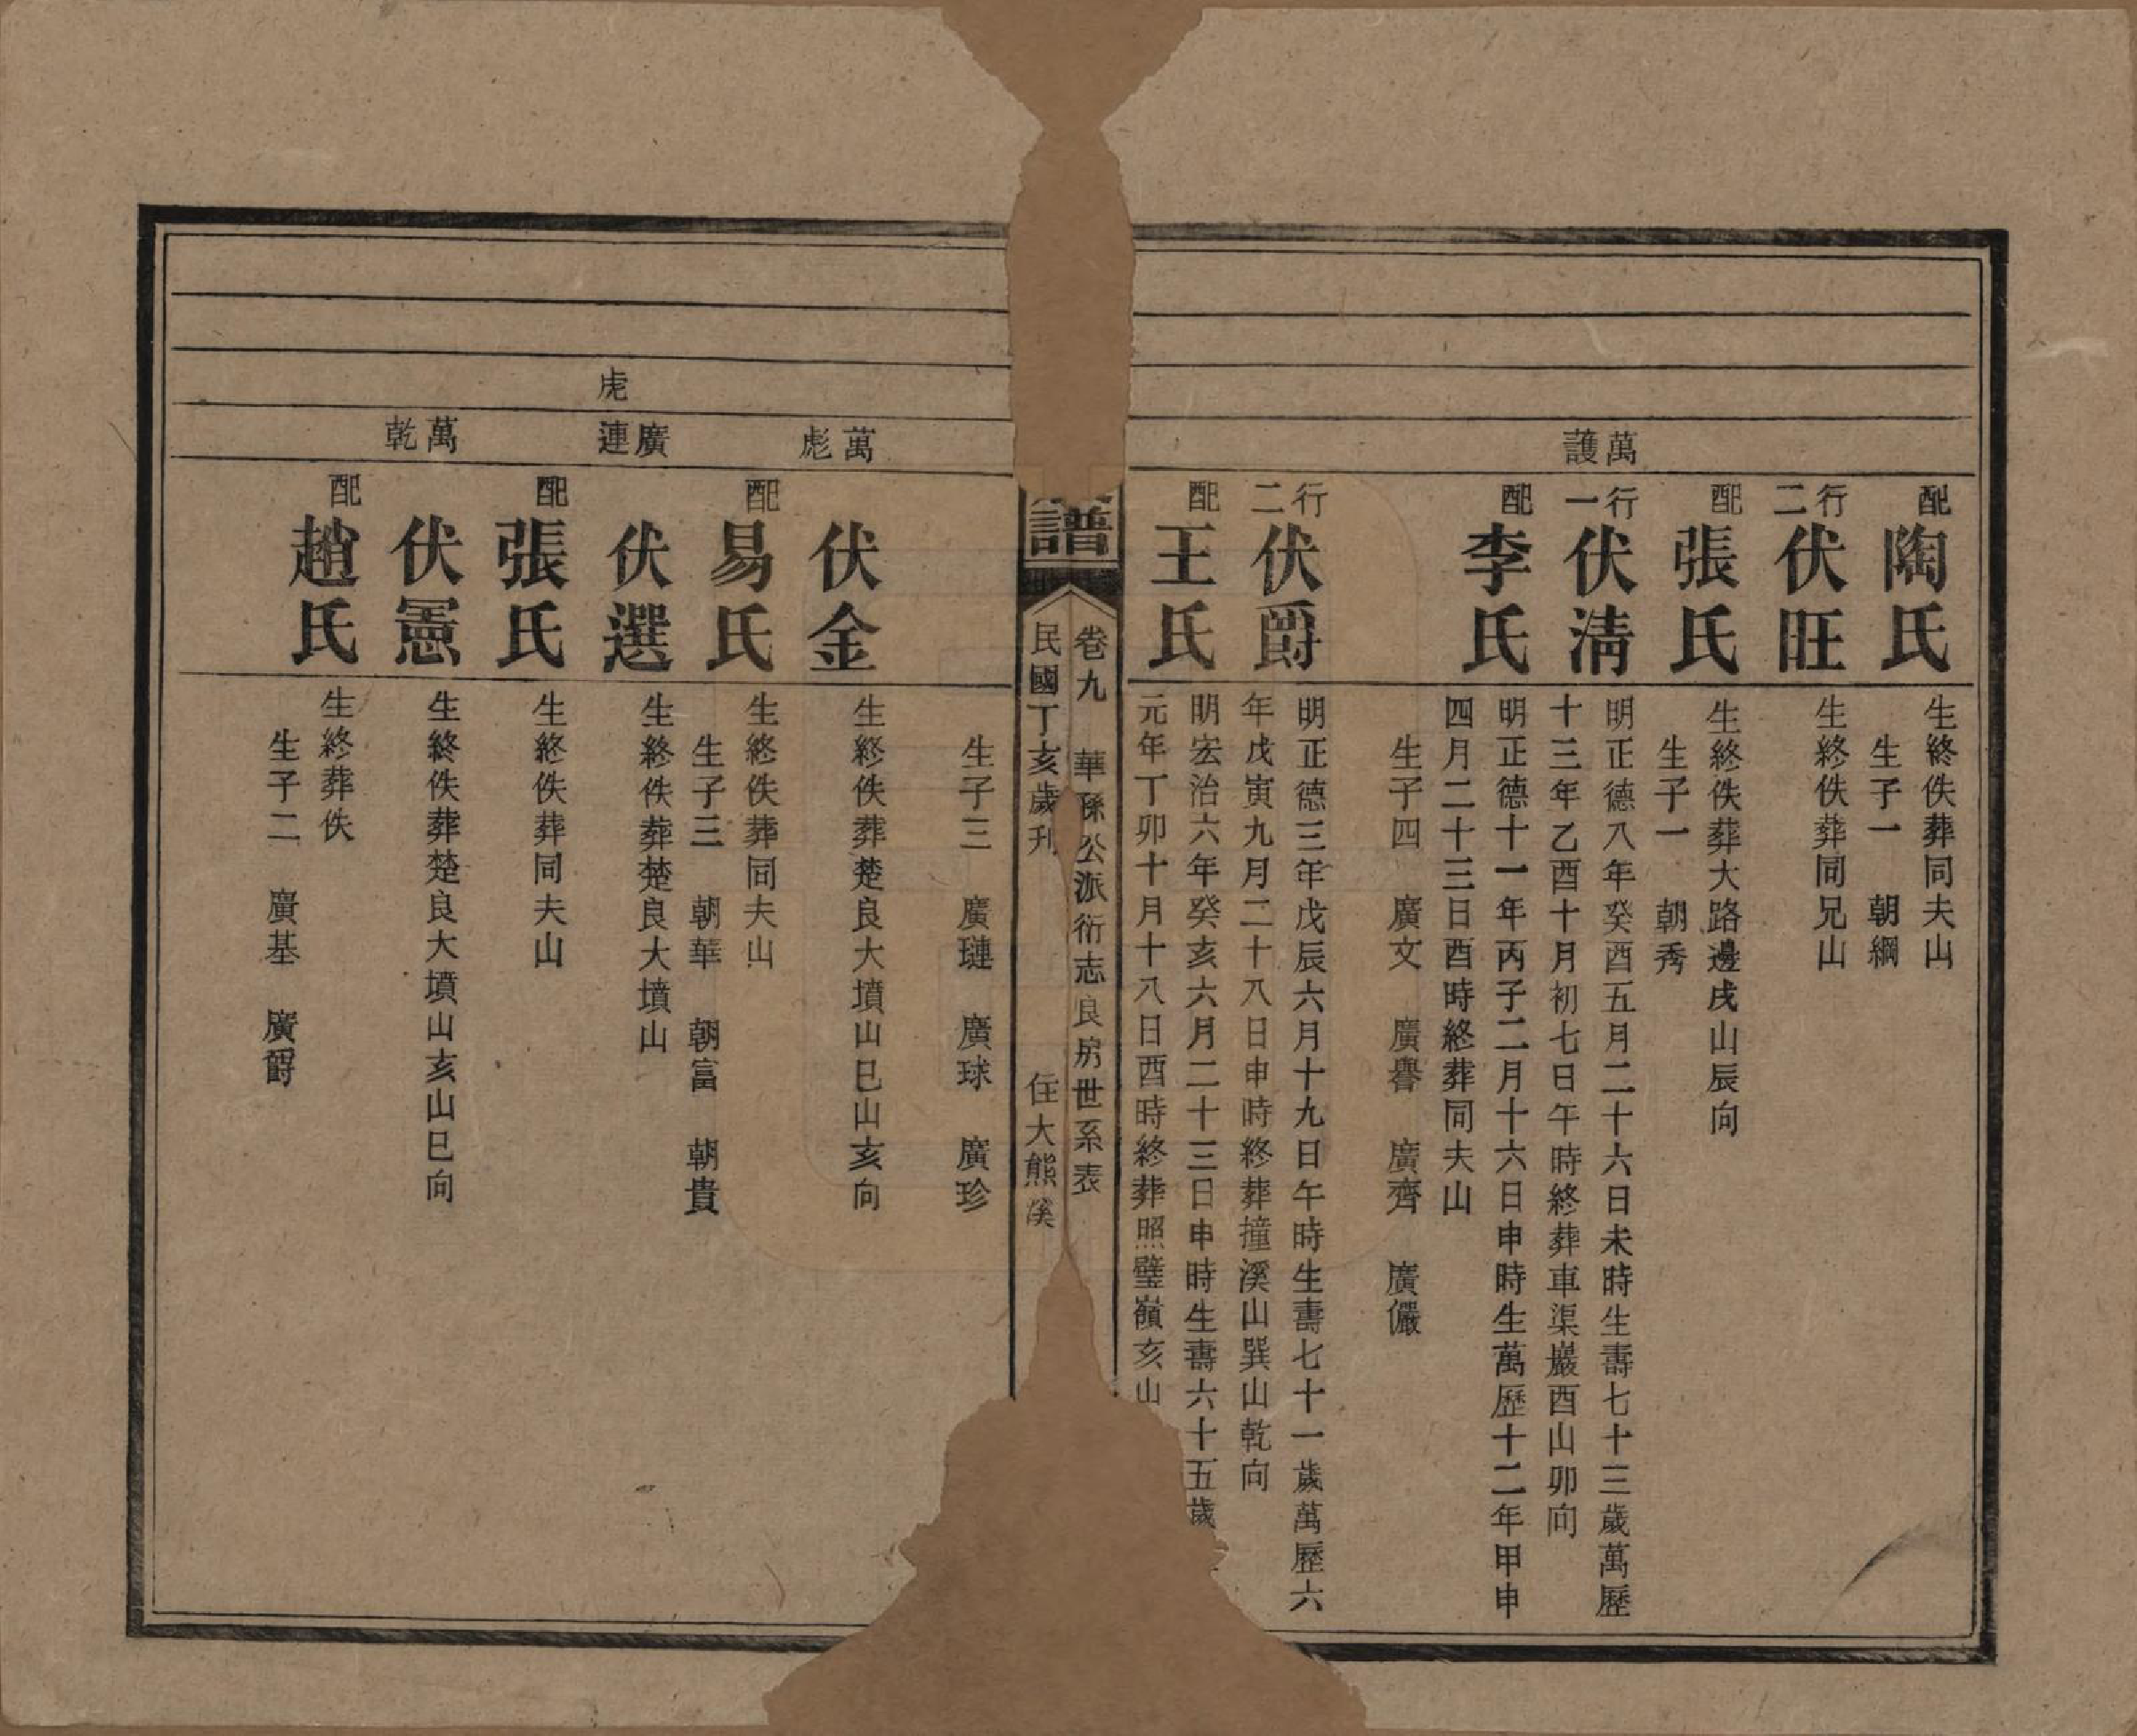 配陶氏
生終佚葬同夫山
生子一　朝綱
行二伏旺
生終佚葬同兄山
配張氏
生終佚葬大路邊戌山辰向
生子一　朝秀
萬護
行一伏清
明正德八年癸酉五月二十六日未時生壽七十三歲萬歷
十三年乙酉十月初七日午時終葬車渠巖酉山卯向
配李氏
明正德十一年丙子二月十六日申時生萬歷十二年甲申
四月二十三日酉時終葬同夫山
生子四　廣文　廣譽　廣齊　廣儼
行二伏爵
明正德三年戊辰六月十九日午時生壽七十一歲萬歷六
年戊寅九月二十八日申時終葬撞溪山巽山乾向
配王氏
明宏治六年癸亥六月二十三日申時生壽六十五歲
元年丁卯十月十八日酉時終葬照璧嶺亥山
譜
卷九　華孫公派衍志良房世系表
民國丁亥歲刋　住大熊溪
生子三　廣璉　廣球　廣珍
萬彪
伏金
生終佚葬楚良大墳山巳山亥向
配易氏
生終佚葬同夫山
生子三　朝華　朝富　朝貴
虎
廣連
伏選
生終佚葬楚良大墳山
配張氏
生終佚葬同夫山
萬乾
伏憲
生終佚葬楚良大墳山亥山巳向
配趙氏
生終葬佚
生子二　廣基　廣爵